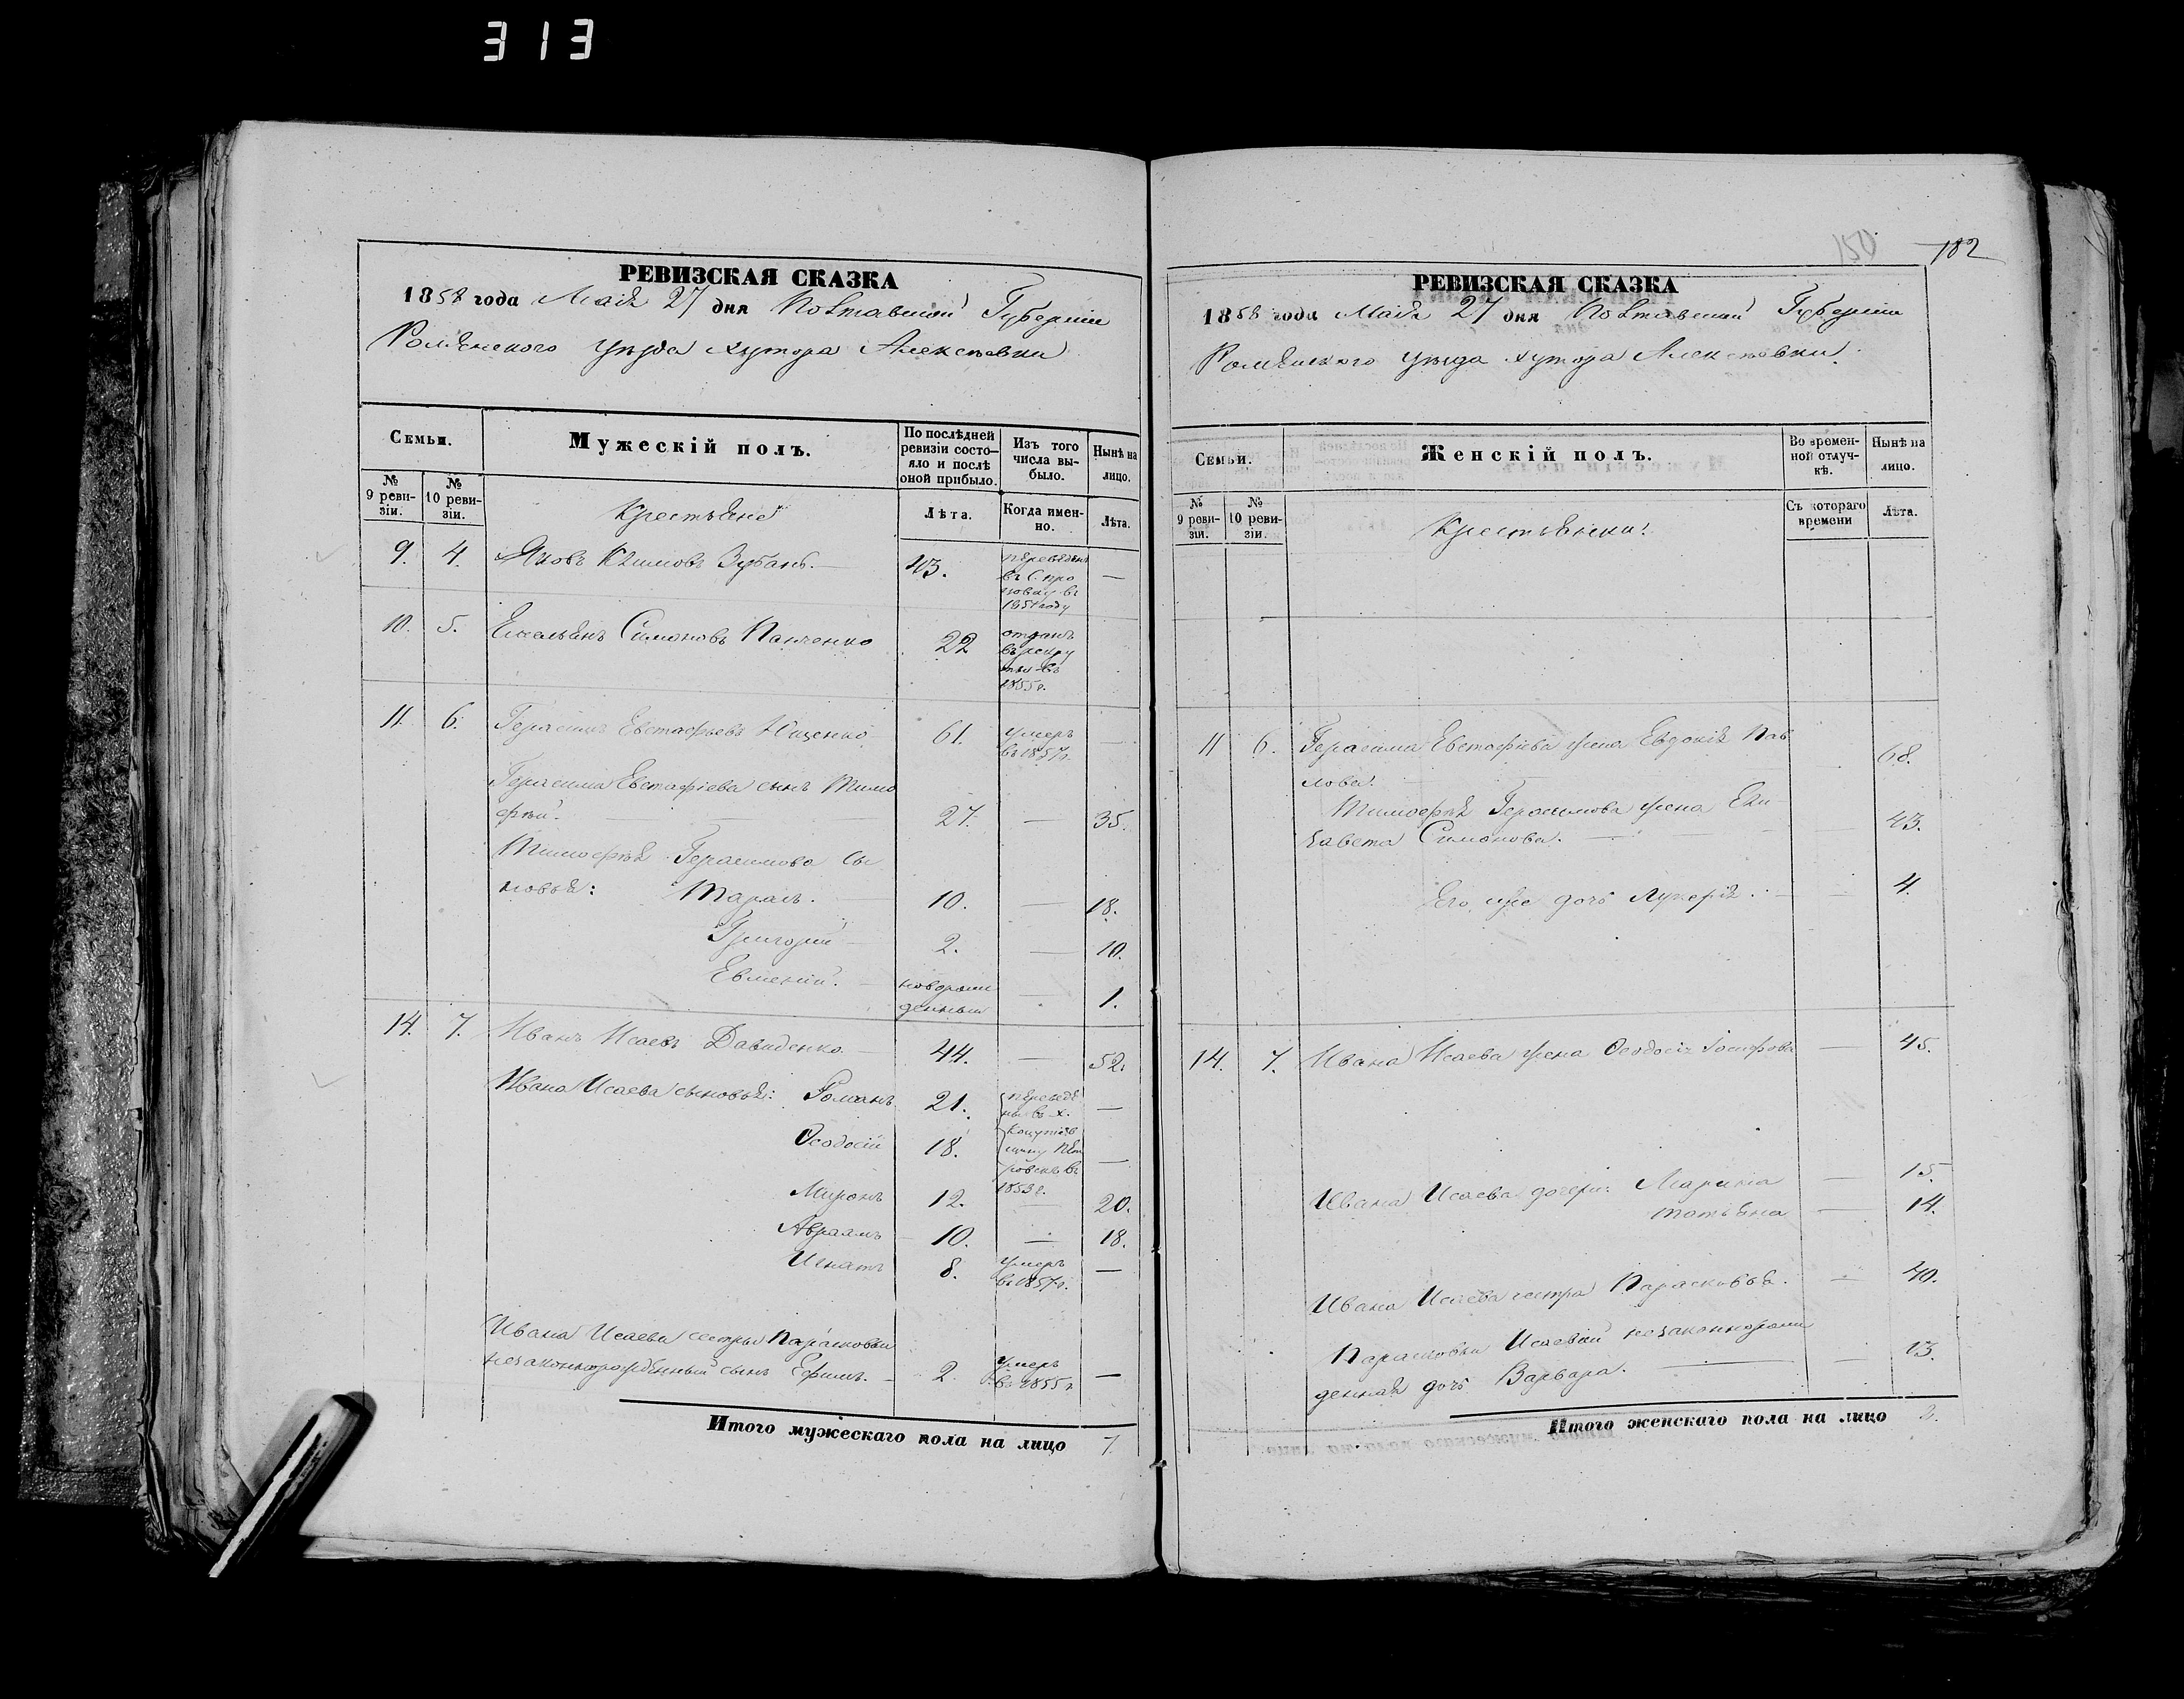 313
150
182
РЕВИЗСКАЯ СКАЗКА
1858 года Маія 27 дня Полтавской Губерніи
Роменского уѣзда хутора Алексѣевки
Семьи.
Мужескій полъ.
По послѣдней ревизіи состояло и послѣ оной прибыло.
Изъ того числа выбыло.
Нынѣ на лицо.
№ 9 ревизіи.
№ 10 ревизіи.
Крестьяне
Лѣта.
Когда именно.
Лѣта.
9. 4. Яковъ Климовъ Зубань. — 43. переведенъ въ 1851 году —
10. 5. Емельянъ Симоновъ Панченко 22 отданъ въ рекруты въ 1855 г.
11. 6. Герасимъ Евстафьевъ Ищенко 61. умеръ въ 1857 г. —
Герасима Евстафіева сынъ Тимо
фѣй. — 27. — 35.
Тимофѣя Герасимова сы
новья: Тарасъ. — 10. — 18.
Григорій — 2. — 10.
Евменій. — новорожденный — 1.
14. 7. Иванъ Исаевъ Давиденко. — 44. — 52.
Ивана Исаева сыновья: Романъ 21. переведены въ х. —
Ѳеодосій 18. въ 1853 г. —
Миронъ 12. — 20.
Авраамъ 10. — 18.
Игнатъ 8. умеръ въ 1857 г. —
Ивана Исаева сестры Парасковьи
незаконнорожденный сынъ Ефимъ. — 2. умеръ въ 1855 г. —
Итого мужескаго пола на лицо 7.
РЕВИЗСКАЯ СКАЗКА
1858 года Маія 27 дня Полтавской Губерніи
Роменского уѣзда хутора Алексѣевки.
Семьи.
Женскій полъ.
Во временной отлучкѣ.
Нынѣ на лицо.
№ 9 ревизіи.
№ 10 ревизіи.
Крестьянки.
Съ котораго времени
Лѣта.
11 6. Герасима Евстафіева жена Евдокія Пав
лова. 68.
Тимофѣя Герасимова жена Ели
завета Симонова. — 43.
Его же дочь Лукерія. — 4.
14. 7. Ивана Исаева жена Ѳеодосія Іосифова — 45.
Ивана Исаева дочери: Марина — 15.
Татьяна — 14.
Ивана Исаева сестра Парасковья. — 40.
Парасковьи Исаевой незаконнорож
денная дочь Варвара. — 13.
Итого женскаго пола на лицо